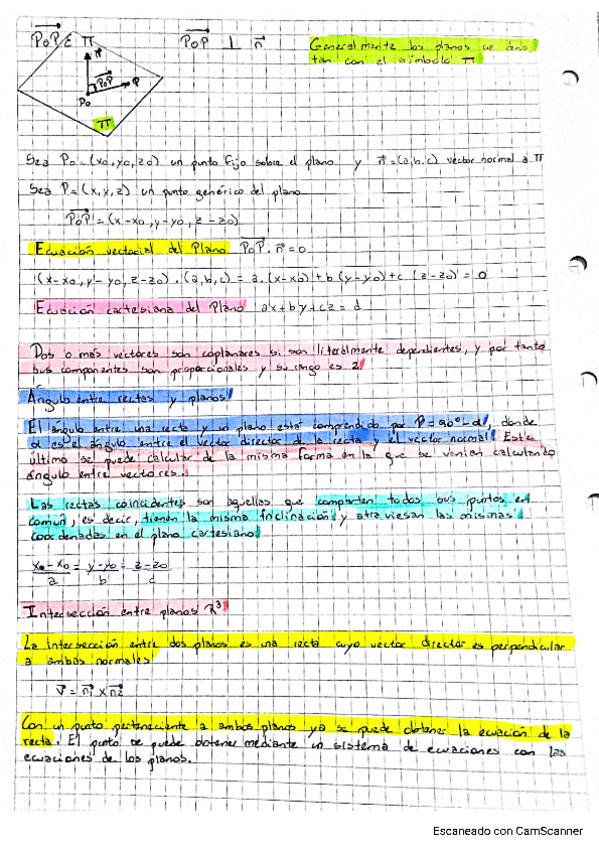 P₀P ∈ π
P₀P ⊥ n
Generalmente los planos se ano
tan con el símbolo π
n
P₀P
P
P₀
π
Sea P₀=(x₀,y₀,z₀) un punto fijo sobre el plano y n=(a,b,c) vector normal a π
Sea P=(x,y,z) un punto genérico del plano
P₀P=(x-x₀,y-y₀,z-z₀)
Ecuación vectorial del Plano P₀P.n=0
(x-x₀,y-y₀,z-z₀).(a,b,c) = a.(x-x₀)+b(y-y₀)+c(z-z₀)=0
Ecuación cartesiana del Plano ax+by+cz=d
Dos o más vectores son coplanares si son literalmente dependientes, y por tanto
sus componentes son proporcionales y su rango es 2
Ángulo entre rectas y planos
El ángulo entre una recta y un plano está comprendido por β=90°-α, donde
α es el ángulo entre el vector director de la recta y el vector normal. Este
último se puede calcular de la misma forma en la que se venían calculando
ángulo entre vectores.
Las rectas coincidentes son aquellas que comparten todos sus puntos en
común, es decir, tienen la misma inclinación y atraviesan las mismas
coordenadas en el plano cartesiano
x-x₀/a = y-y₀/b = z-z₀/c
Intersección entre planos R³
La intersección entre dos planos es una recta cuyo vector director es perpendicular
a ambas normales
v = n₁ x n₂
Con un punto perteneciente a ambos planos ya se puede obtener la ecuación de la
recta. El punto se puede obtener mediante un sistema de ecuaciones con las
ecuaciones de los planos.
Escaneado con CamScanner